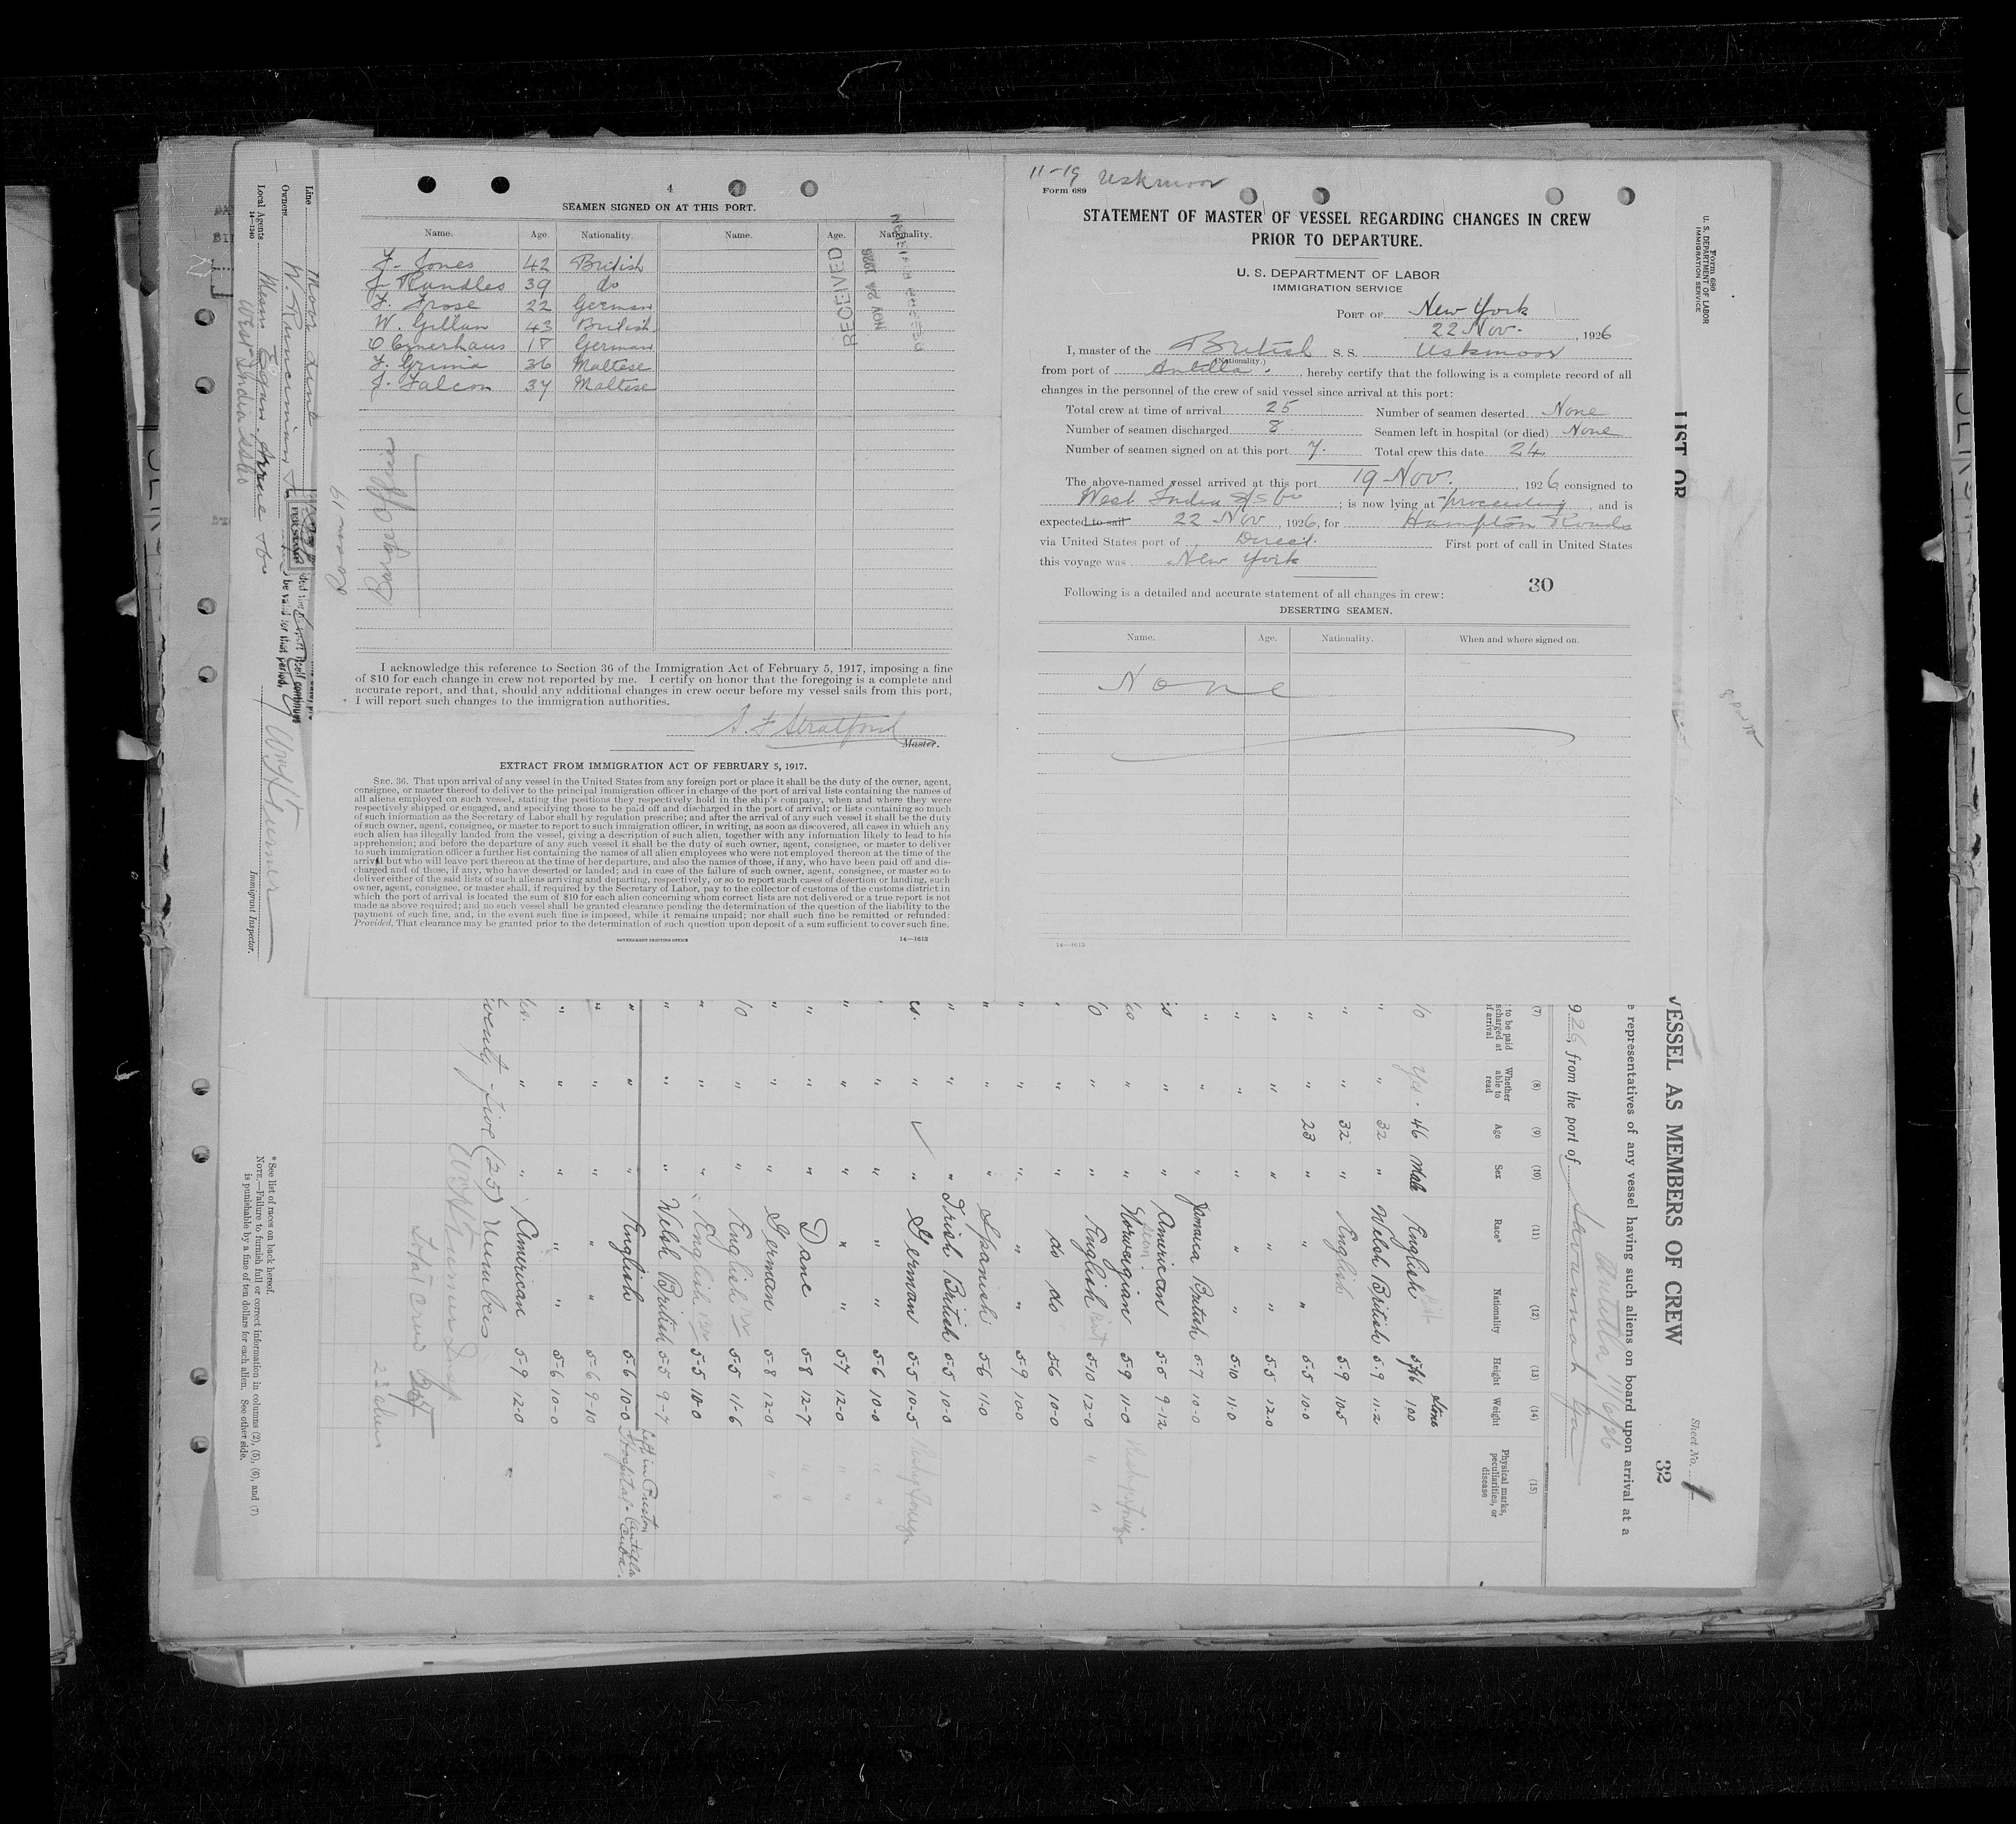 4
SEAMEN SIGNED ON AT THIS PORT.
Name. Age. Nationality. Name. Age. Nationality.
J. Jones 42 British
J. Rundles 39 do
F. Frose 22 German
W. Gillan 43 British
18 German
J. Grima 36 Maltese
J. Falcon 34 Maltese
RECEIVED
NOV 24 1926
I acknowledge this reference to Section 36 of the Immigration Act of February 5, 1917, imposing a fine
of $10 for each change in crew not reported by me. I certify on honor that the foregoing is a complete and
accurate report, and that, should any additional changes in crew occur before my vessel sails from this port,
I will report such changes to the immigration authorities.
Stratford
Master.
EXTRACT FROM IMMIGRATION ACT OF FEBRUARY 5, 1917.
SEC. 36. That upon arrival of any vessel in the United States from any foreign port or place it shall be the duty of the owner, agent,
consignee, or master thereof to deliver to the principal immigration officer in charge of the port of arrival lists containing the names of
all aliens employed on such vessel, stating the positions they respectively hold in the ship's company, when and where they were
respectively shipped or engaged, and specifying those to be paid off and discharged in the port of arrival; or lists containing so much
of such information as the Secretary of Labor shall by regulation prescribe; and after the arrival of any such vessel it shall be the duty
of such owner, agent, consignee, or master to report to such immigration officer, in writing, as soon as discovered, all cases in which any
such alien has illegally landed from the vessel, giving a description of such alien, together with any information likely to lead to his
apprehension; and before the departure of any such vessel it shall be the duty of such owner, agent, consignee, or master to deliver
to such immigration officer a further list containing the names of all alien employees who were not employed thereon at the time of the
arrival but who will leave port thereon at the time of her departure, and also the names of those, if any, who have been paid off and dis-
charged and of those, if any, who have deserted or landed; and in case of the failure of such owner, agent, consignee, or master so to
deliver either of the said lists of such aliens arriving and departing, respectively, or so to report such cases of desertion or landing, such
owner, agent, consignee, or master shall, if required by the Secretary of Labor, pay to the collector of customs of the customs district in
which the port of arrival is located the sum of $10 for each alien concerning whom correct lists are not delivered or a true report is not
made as above required; and no such vessel shall be granted clearance pending the determination of the question of the liability to the
payment of such fine, and, in the event such fine is imposed, while it remains unpaid; nor shall such fine be remitted or refunded:
Provided, That clearance may be granted prior to the determination of such question upon deposit of a sum sufficient to cover such fine.
GOVERNMENT PRINTING OFFICE 14—1613
11-19 Uskmoor
Form 689
STATEMENT OF MASTER OF VESSEL REGARDING CHANGES IN CREW
PRIOR TO DEPARTURE.
U. S. DEPARTMENT OF LABOR
IMMIGRATION SERVICE
PORT OF New York
22 Nov. , 1926
I, master of the British S. S. Uskmoor
(Nationality.)
from port of Antilla , hereby certify that the following is a complete record of all
changes in the personnel of the crew of said vessel since arrival at this port:
Total crew at time of arrival 25 Number of seamen deserted None
Number of seamen discharged 8 Seamen left in hospital (or died) None
Number of seamen signed on at this port 7. Total crew this date 24
The above-named vessel arrived at this port 19 Nov. , 1926 consigned to
West India S/S Co ; is now lying at proceeding , and is
expected to sail 22 Nov , 1926, for Hampton Roads
via United States port of Direct. First port of call in United States
this voyage was New York
30
Following is a detailed and accurate statement of all changes in crew:
DESERTING SEAMEN.
Name. Age. Nationality. When and where signed on.
None
14—1613
Form 689
U. S. DEPARTMENT OF LABOR
IMMIGRATION SERVICE
LIST OR
Sheet No. 1
32
VESSEL AS MEMBERS OF CREW
e representatives of any vessel having such aliens on board upon arrival at a
Antilla 11/6/26
926, from the port of Savannah Ga
(7) (8) (9) (10) (11) (12) (13) (14) (15)
to be paid scharged at f arrival Whether able to read Age Sex Race* Nationality Height Weight Physical marks, peculiarities, or disease
Stone
Yes. 46 Male English 100
" " 32 " Welsh British 5-9 11-2
" " 32 " English 5-9 10-5
" " 23 " " " 5-5 10-0
" " " " " 5-5 12-0
" " " " " 5-10 11-0
" " " Jamaica British 5-7 10-0
" " American 5-5 9-12
" " Norwegian 5-9 11-0
" " English 5-10 12-0 " "
" " do do 5-6 10-0
" " " " " 5-9 10-0
" " " Spanish 5-6 11-0
" " " Irish British 5-5 10-0
" " German 5-5 10-5
" " " " " 5-6 10-0 " "
" " " " " 5-7 12-0 " "
" " " Dane 5-8 12-7 " "
" " " German 5-8 12-0 " "
" " English 5-5 11-6
" " " English 5-5 10-0
" " " Welsh British 5-5 9-7
" " " English 5-6 10-0 Left in Preston Hospital - Antilla Cuba.
" " " " " 5-6 9-10
" " " " " 5-6 10-0
" " American 5-9 12-0
twenty-five (25) Members
Total crew 25
23 aliens
Line Moor Line
Owners W. Runciman
Local Agents Messrs Egan
West India SS Co
14-1240
be valid for that period.
Immigrant Inspector.
* See list of races on back hereof.
NOTE.—Failure to furnish full or correct information in columns (2), (5), (6), and (7)
is punishable by a fine of ten dollars for each alien. See other side.